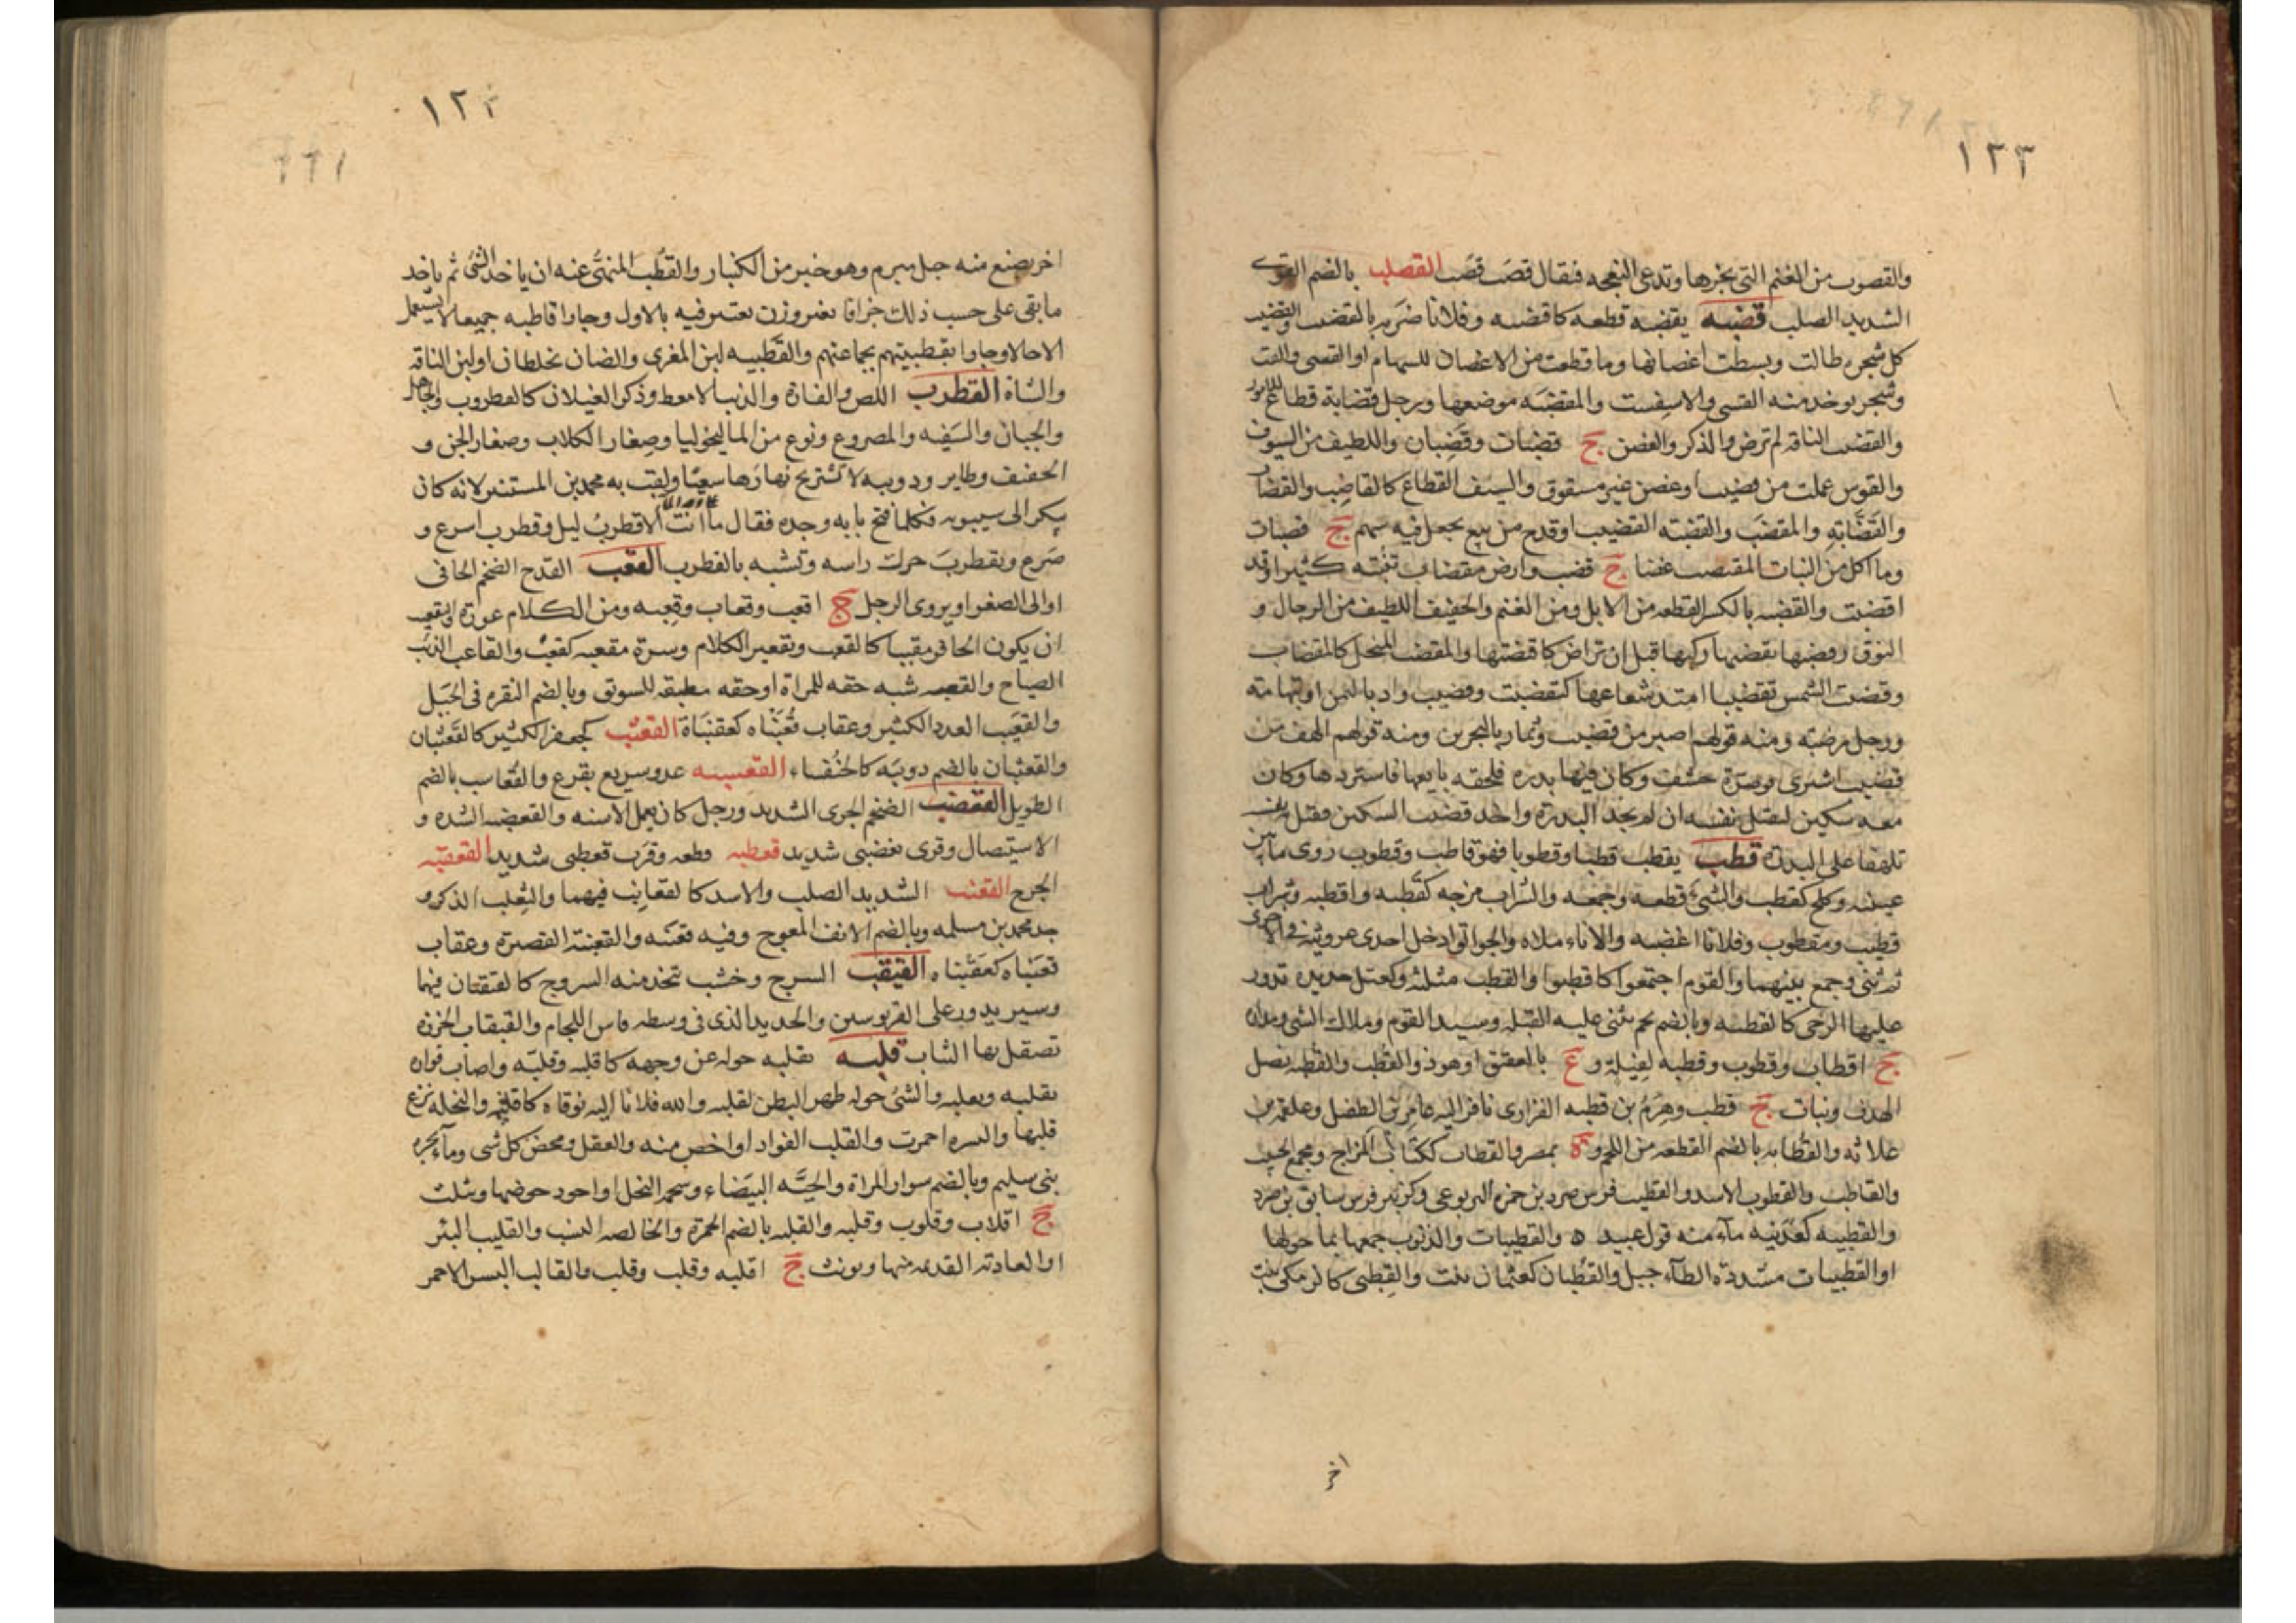 ١٢٣
والقصوب من الغنم التى يجزها وتدعى النعجه فيقال قصب قصب القصلب بالضم القوى
الشديد الصلب قضبه يقضبه قطعه كاقتضبه وفلانا ضربه بالقضيب والقضب
كل شجره طالت وبسطت اغصانها وما قطعت من الاغصان للسهام او القسى والقت
وشجر يوخذ منه القسى والاسفست والمقضبه موضعها ورجل قضابة قطاع للامور
والقضيب الناقه لم ترض والذكر والغصن ج قضبات وقضبان واللطيف من السيوف
والقوس عملت من قضيب او غصن غير مشقوق والسيف القطاع كالقاضب والقضاب
والقضابه والمقضب والقضبه القضيب او قدح من نبع يجعل فيه سهم ج قضبات
وما اكل من النبات المقتضب غضا ج قضب وارض مقضاب تنبته كثيرا وقد
اقضبت والقضبه بالكسر القطعه من الابل ومن الغنم والخفيف اللطيف من الرجال و
النوق وقضبها يقضبها ركبها قبل ان تراض كاقتضبها والمقضب المنجل كالمقضاب
وقضبت الشمس تقضيبا امتد شعاعها كتقضبت وقضيب واد باليمن او بتهامه
ورجل من ضبه ومنه قولهم اصبر من قضيب وتمار بالبحرين ومنه قولهم الهف من
قضيب اشترى قوصرة حشف وكان فيها بدره فلحقه بايعها فاستردها وكان
معه سكين ليقتل نفسه ان لم يجد البدرة واخذ قضيب السكين فقتل نفسه
تلهفا على البدرة قطب يقطب قطبا وقطوبا فهو قاطب وقطوب زوى ما بين
عينيه وكلح كقطب والشئ قطعه وجمعه والشراب مزجه كقطبه واقطبه وشراب
قطيب ومقطوب وفلانا اغضبه والاناء ملاه والجوالق ادخل احدى عروتيه فى الاخرى
ثم ثنى وجمع بينهما والقوم اجتمعوا كاقطبوا والقطب مثلثه وكعتل حديده تدور
عليها الرحى كالقطبه وبالضم نجم تبنى عليه القبله وسيد القوم وملاك الشئ ومداره
ج اقطاب وقطوب وقطبه كفيلة و ع بالعقيق او هو ذو القطب والقطبه نصل
الهدف ونبات ج قطب وهرم بن قطبه الفزارى نافر اليه عامر بن الطفيل وعلقمه بن
علاثه والقطابه بالضم القطعه من اللحم و ة بمصر والقطاب ككتاب المزاج ومجمع الجيب
والقاطب والقطوب الاسد والقطيب فرس صرد بن حمزه اليربوعى وكزبير فرس سابق بن صرد
والقطبيه كعرنيه ماء منه قول عبيد ه والقطبيات والذنوب جمعها بما حولها
او القطبيات مشددة الطاء جبل والقطبان كعثمان نبت والقطبى كالزمكى نبت
اخر
١٢٣
اخر يصنع منه حبل مبرم وهو خير من الكنبار والقطب المنهى عنه ان ياخذ الشئ ثم ياخذ
ما بقى على حسب ذلك جزافا بغير وزن يعتبر فيه بالاول وجاوا قاطبه جميعا لا يستعمل
الا حالا وجاوا بقطيبتهم بجماعتهم والقطيبه لبن المعزى والضان يخلطان او لبن الناقه
والشاة القطرب اللص والفارة والذيب الامعط وذكر الغيلان كالقطروب والجاهل
والجبان والسفيه والمصروع ونوع من الماليخوليا وصغار الكلاب وصغار الجن و
الخفيف وطاير ودويبه لا تستريح نهارها سعيا ولقب به محمد بن المستنير لانه كان
يبكر الى سيبويه فكلما فتح بابه وجده فقال ما انت الا قطرب ليل وقطرب اسرع و
صرع وتقطرب حرك راسه وتشبه بالقطرب القعب القدح الضخم الجافى
او الى الصغر او يروى الرجل ج اقعب وقعاب وقعبه ومن الكلام غوره والتقعيب
ان يكون الحافر مقببا كالقعب وتقعير الكلام وسرة مقعبه كقعب والقاعب الذيب
الصياح والقعبه شبه حقه للمراة او حقه مطبقه للسويق وبالضم النقره فى الجبل
والقعيب العدد الكثير وعقاب قعنباه كعقنباة القعثب كجعفر الكثير كالقعثبان
والقعثبان بالضم دويبه كالخنفساء القعسبه عدو سريع بقزع والقعاسب بالضم
الطويل القعضب الضخم الجرى الشديد ورجل كان يعمل الاسنه والقعضبه الشده و
الاستيصال وقرى قعضبى شديد قعطبه قطعه وقرب قعطبى شديد القعقبه
الجرح القعنب الشديد الصلب والاسد كالقعانب فيهما والثعلب الذكر و
جد محمد بن مسلمه وبالضم الانف المعوج وفيه قعنبه والقعنبه القصيرة وعقاب
قعنباه كعقنباه القيقب السرج وخشب تتخذ منه السروج كالقيقبان فيهما
وسير يدور على القربوسين والحديد الذى فى وسطه فاس اللجام والقبقاب الخرزه
تصقل بها الثياب قلبه يقلبه حوله عن وجهه كاقلبه وقلبه واصاب فواده
يقلبه ويقلبه والشئ حوله ظهرا لبطن كقلبه والله فلانا اليه توفاه كاقلبه والنخله نزع
قلبها والبسره احمرت والقلب الفواد او اخص منه والعقل ومحض كل شى وماء بحرة
بنى سليم وبالضم سوار المراة والحيه البيضاء وشحمه النخل او اجود خوصها ويثلث
ج اقلاب وقلوب وقلبه والقلبه بالضم الحمرة والخالصه النسب والقليب البئر
او العاديه القديمه منها ويونث ج اقلبه وقلب وقلب والقالب البسر الاحمر